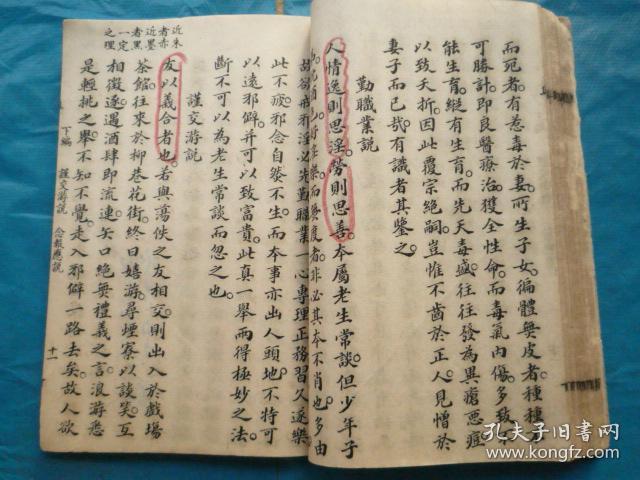 而死者有惹毒於妻所生子女徧體無皮者種種
可勝計即良醫療治獲全性命而毒氣內傷多致
能生育縱有生育而先天毒盛往往發為異瘡惡痘
以致夭折因此覆宗絕嗣豈惟不齒於正人見憎於
妻子而已哉有識者其鑒之
勤職業說
人情逸則思淫勞則思善本屬老生常談但少年子
故欲戒邪淫必先勤職業一心專理正務習久遂樂
此不疲邪念自然不生而本事亦出人頭地不特可
以遠邪僻并可以致富貴此真一舉兩得極妙之法
斷不可以為老生常談而忽之也
謹交游說
友以義合者也若與蕩佚之友相交則出入於戲場
茶館往來於柳巷花街終日嬉游尋煙寮以談笑互
相徵逐遇酒肆即流連矢口絕無禮義之言浪游悉
是輕挑之舉不知不覺走入邪僻一路去矣故人欲
近朱
者赤
近墨
者黑
一定
之理
下編
謹交游說
念報應說
十一
孔夫子旧书网
kongfz.com